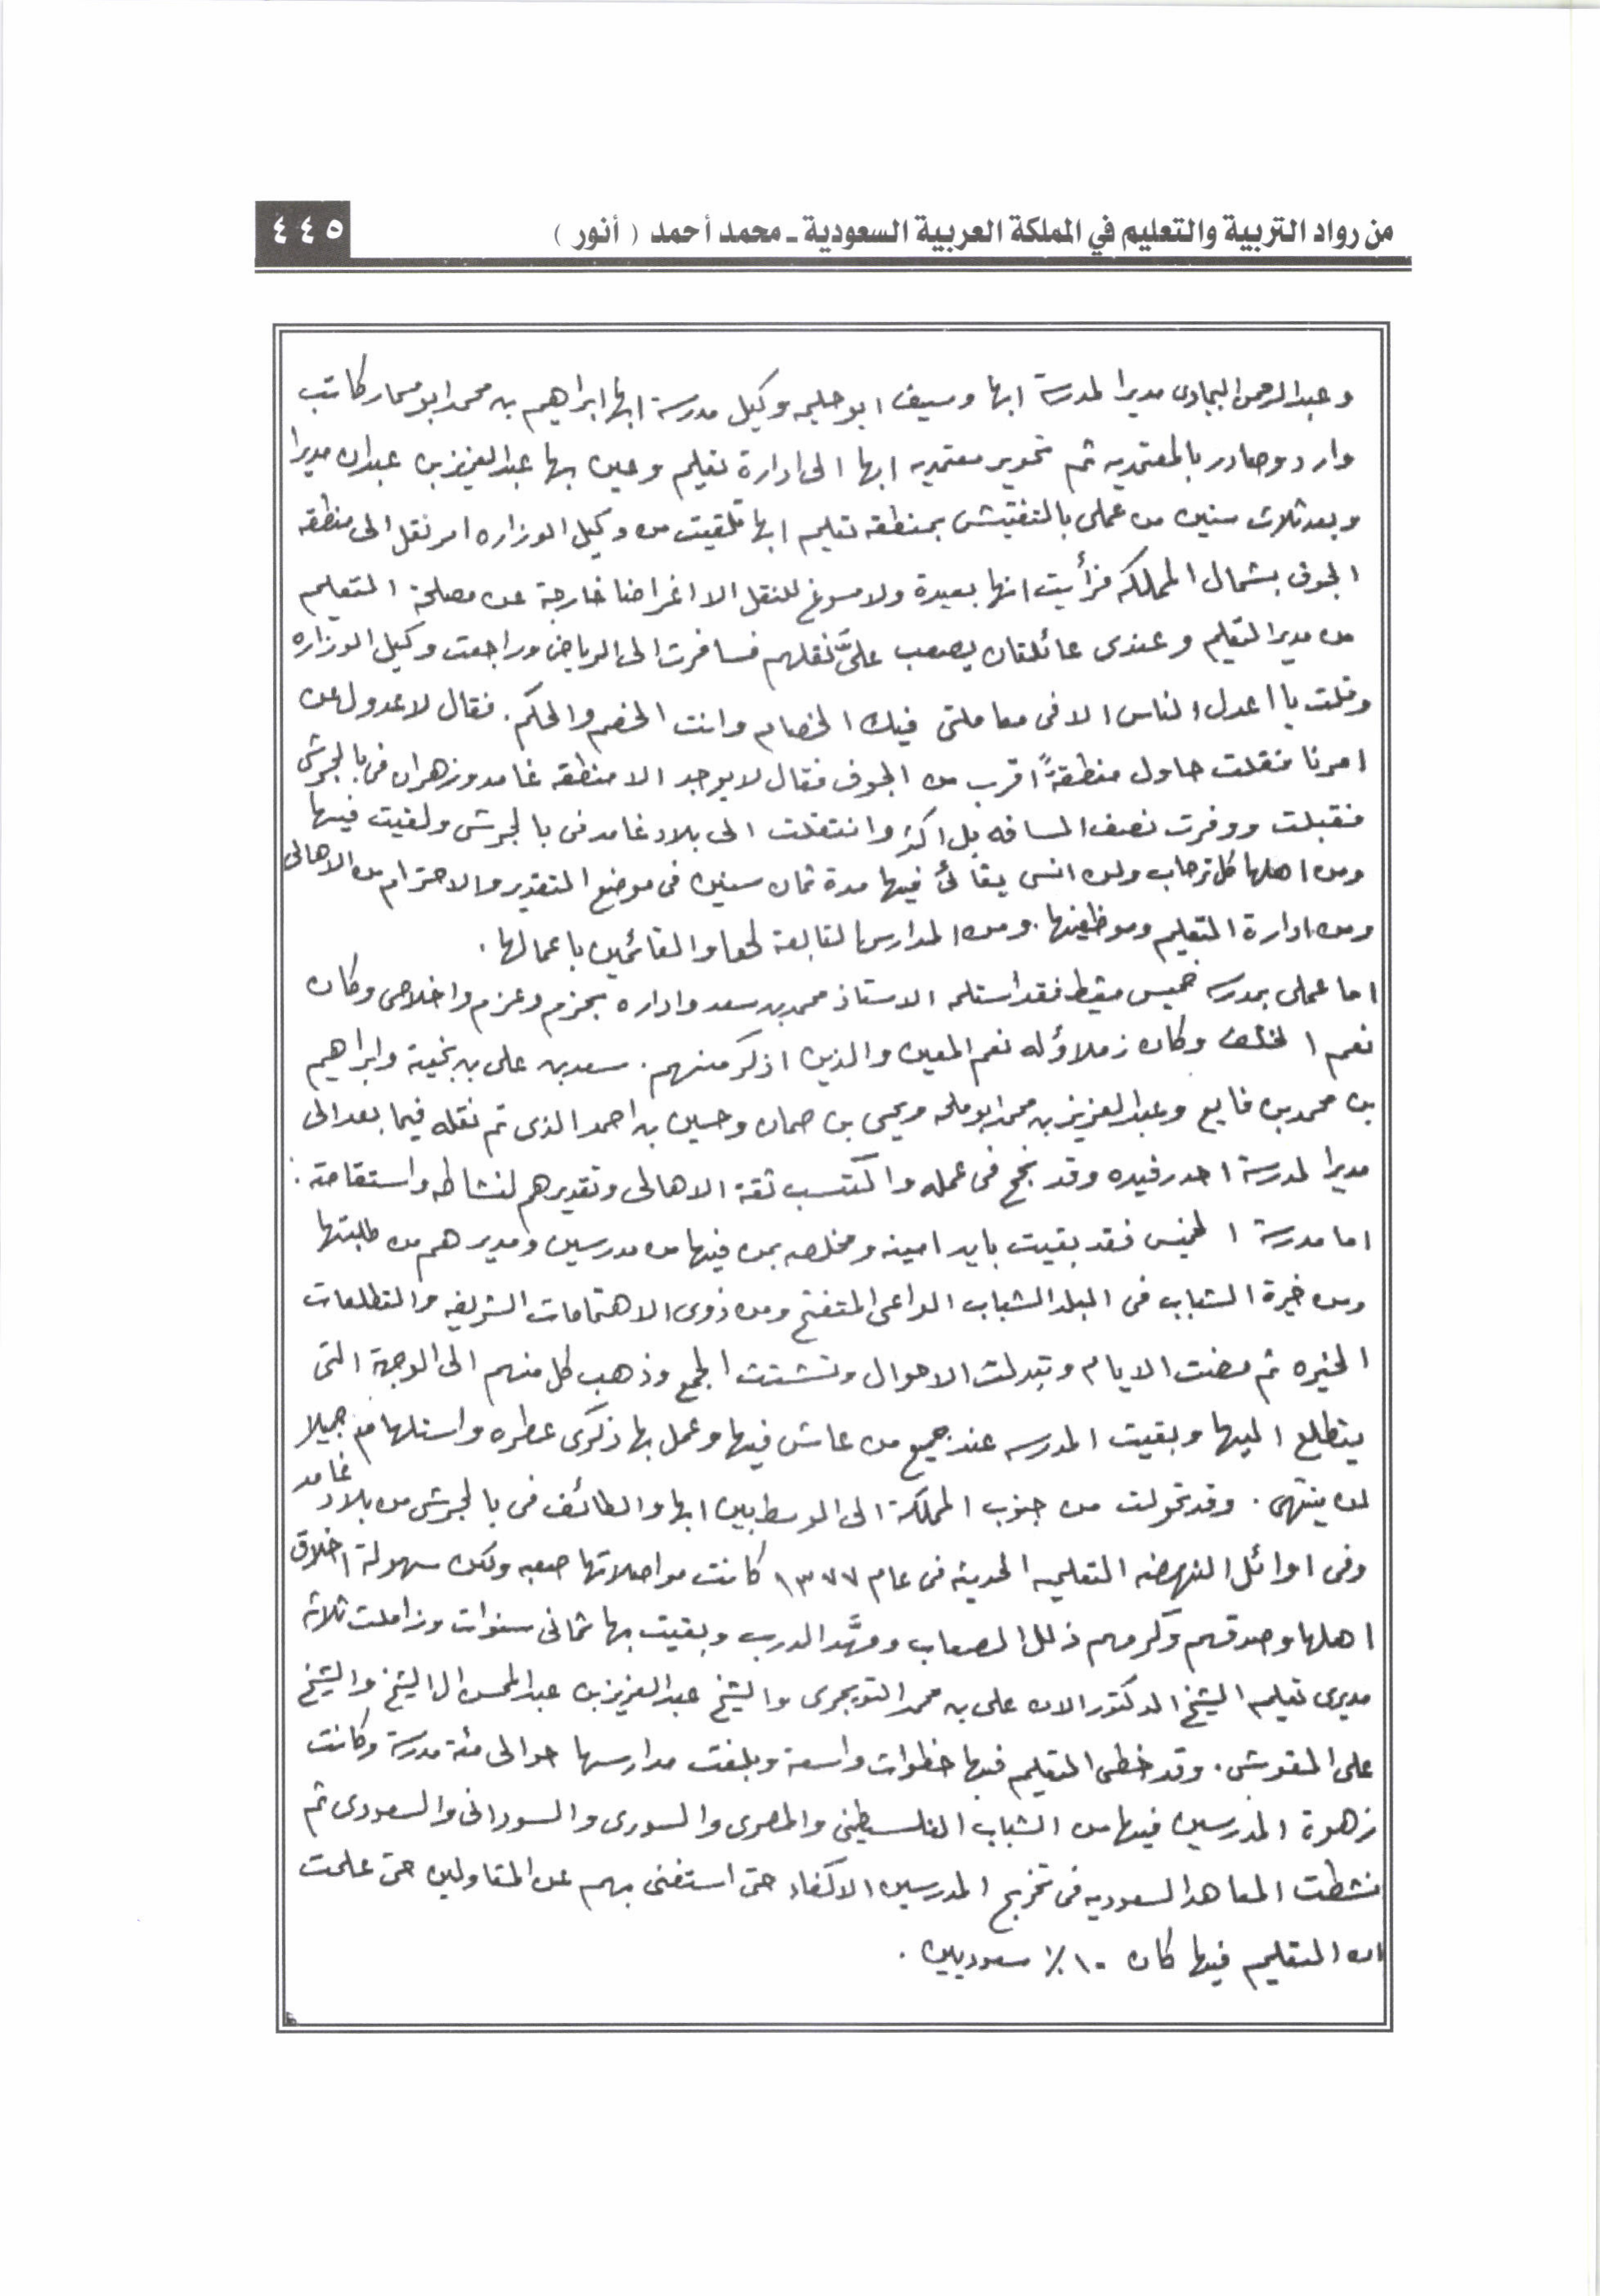 من رواد التربية والتعليم في المملكة العربية السعودية ـ محمد أحمد ( أنور )
٤٤٥
و عبدالرحمن البجادى مديرا لمدرسة ابها وسيف ابو حليمه وكيل مدرسة ابها ابراهيم بن محمد ابو مسمار كاتب
وارد وصادر بالمعتمديه ثم تحوير معتمديه ابها الى ادارة تعليم وعين بها عبدالعزيز بن عبدان مديرا
وبعد ثلاث سنين من عملى بالتفتيش بمنطقه تعليم ابها تلقيت من وكيل الوزاره امر نقل الى منطقه
الجوف بشمال المملكه فرأيت انها بعيدة ولا مسوغ للنقل الا اغراضا خارجة عن مصلحة التعليم
من مدير التعليم وعندى عائلتان يصعب علىَّ نقلهم فسافرت الى الرياض وراجعت وكيل الوزاره
وقلت يا اعدل الناس الا فى معاملتى فيك الخصام وانت الخصم والحكم . فقال لا عدول عن
امرنا فقلت حاول منطقةً اقرب من الجوف فقال لا يوجد الا منطقه غامد وزهران فى بالجرشى
فقبلت ووفرت نصف المسافه بل اكثر وانتقلت الى بلاد غامد فى بالجرشى ولقيت فيها
ومن اهلها كل ترحاب ولن انس بقائى فيها مدة ثمان سنين فى موضع التقدير والاحترام من الاهالى
ومن ادارة التعليم وموظفيها . ومن المدارس التابعة لها والقائمين باعمالها .
اما عملى بمدرسه خميس مشيط فقد استلمه الاستاذ محمد بن سعد واداره بحزم وعزم واخلاص وكان
نعم الخلف وكان زملاؤه له نعم المعين والذين اذكر منهم . سعد بن على بن بخيته وابراهيم
بن محمد بن فايع وعبدالعزيز بن محمد ابو ملحه ويحيى بن حمان وحسين بن احمد الذى تم نقله فيما بعد الى
مديرا لمدرسة احد رفيده وقد نجح فى عمله واكتسب ثقة الاهالى وتقديرهم لنشاطه واستقامته .
اما مدرسة الخميس فقد بقيت بايد امينه ومخلصه بمن فيها من مدرسين ومديرهم من طلبتها
ومن خيرة الشباب فى البلد الشباب الواعى المتفتح ومن ذوى الاهتمامات الشريفه والتطلعات
الخيره ثم مضت الايام وتبدلت الاحوال وتشتت الجمع وذهب كل منهم الى الوجهة التى
يتطلع اليها وبقيت المدرسه عند جميع من عاش فيها وعمل بها ذكرى عطره جميلا
لن ينتهى . وقد تحولت من جنوب المملكة الى الوسط بين ابها والطائف فى بالجرشى من بلاد غامد
وفى اوائل النهضه التعليميه الحديثه فى عام ١٣٧٧ كانت مواصلاتها صعبه ولكن سهولة اخلاق
اهلها وصدقهم وكرمهم ذلل الصعاب ومهَّد الدرب وبقيت بها ثمانى سنوات وزاملت ثلاثة
مديرى تعليم الشيخ الدكتور الان على بن محمد التويجرى والشيخ عبدالعزيز بن عبدالمحسن ال الشيخ والشيخ
على المقوشى . وقد خطى التعليم فيها خطوات واسعة وبلغت مدارسها حوالى مئة مدرسة وكانت
زهوة المدرسين فيها من الشباب الفلسطينى والمصرى والسورى والسودانى والسعودى ثم
نشطت المعاهد السعوديه فى تخريج المدرسين الاكفاء حتى استغنى بهم عن المقاولين حتى علمت
ان التعليم فيها كان ١٠٠٪ سعوديين .